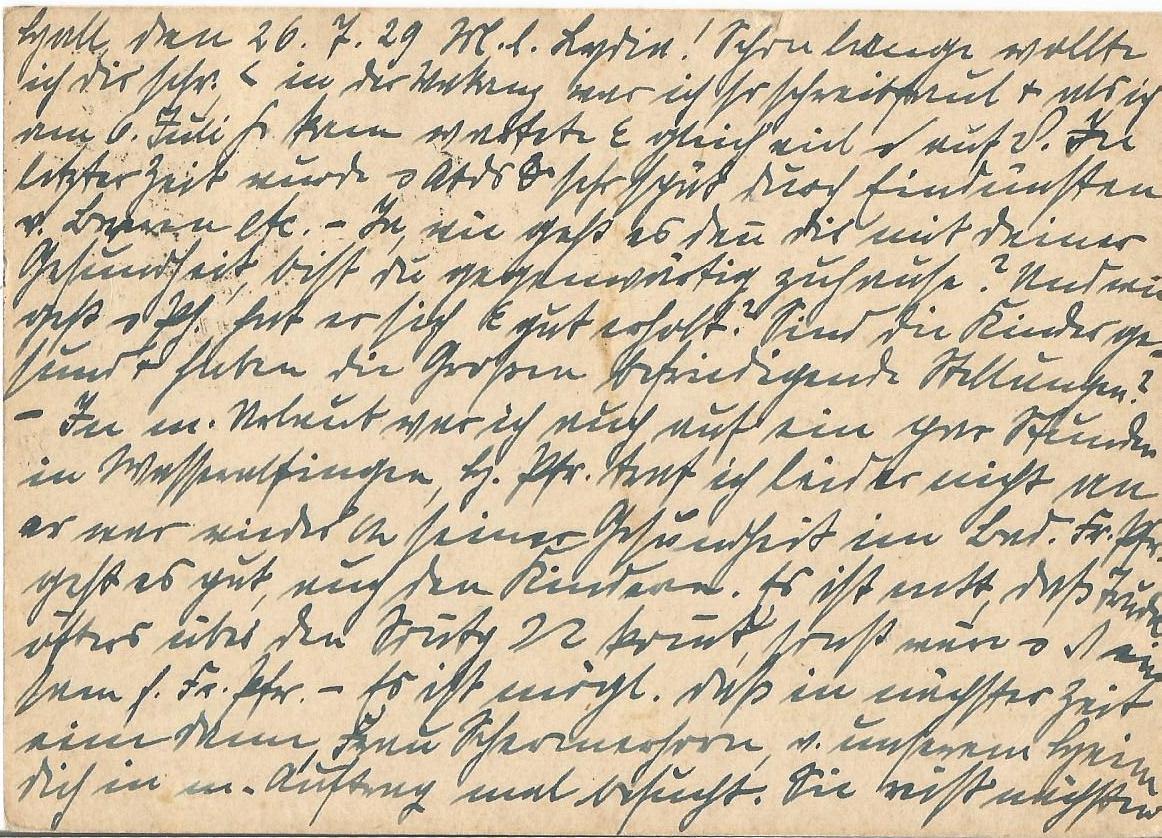 Hall, den 26. 7. 29 M. l. Lydia! Schon lange wollte
ich dir schr. in der Vakanz war ich so schreibfaul + als ich
am 6. Juli kam wartete gleich viel auf. In
letzter Zeit wurde Abds sehr spät durch Eindünsten
v. Beeren etc. – Ja, wie geht es den dir mit deiner
Gesundheit, bist du gegenwärtig zuhause? Und wie
geht Pf. hat er sich gut erholt? Sind die Kinder ge-
sund + haben die Großen befriedigende Stellungen?
– In m. Urlaub war ich auch auf ein par Stunden
in Wasseralfingen, H. Pfr. traf ich leider nicht an
er war wieder seiner Gesundheit im Bad. Fr. Pfr.
geht es gut, auch den Kindern. Es ist nett, daß
öfters über den kommt, sonst wäre ein-
sam f. Fr. Pfr. – Es ist mögl. daß in nächster Zeit
eine Dame, Frau Schermerhorn, v. unserem Heim
dich in m. Auftrag mal besucht. Sie reist nächsten